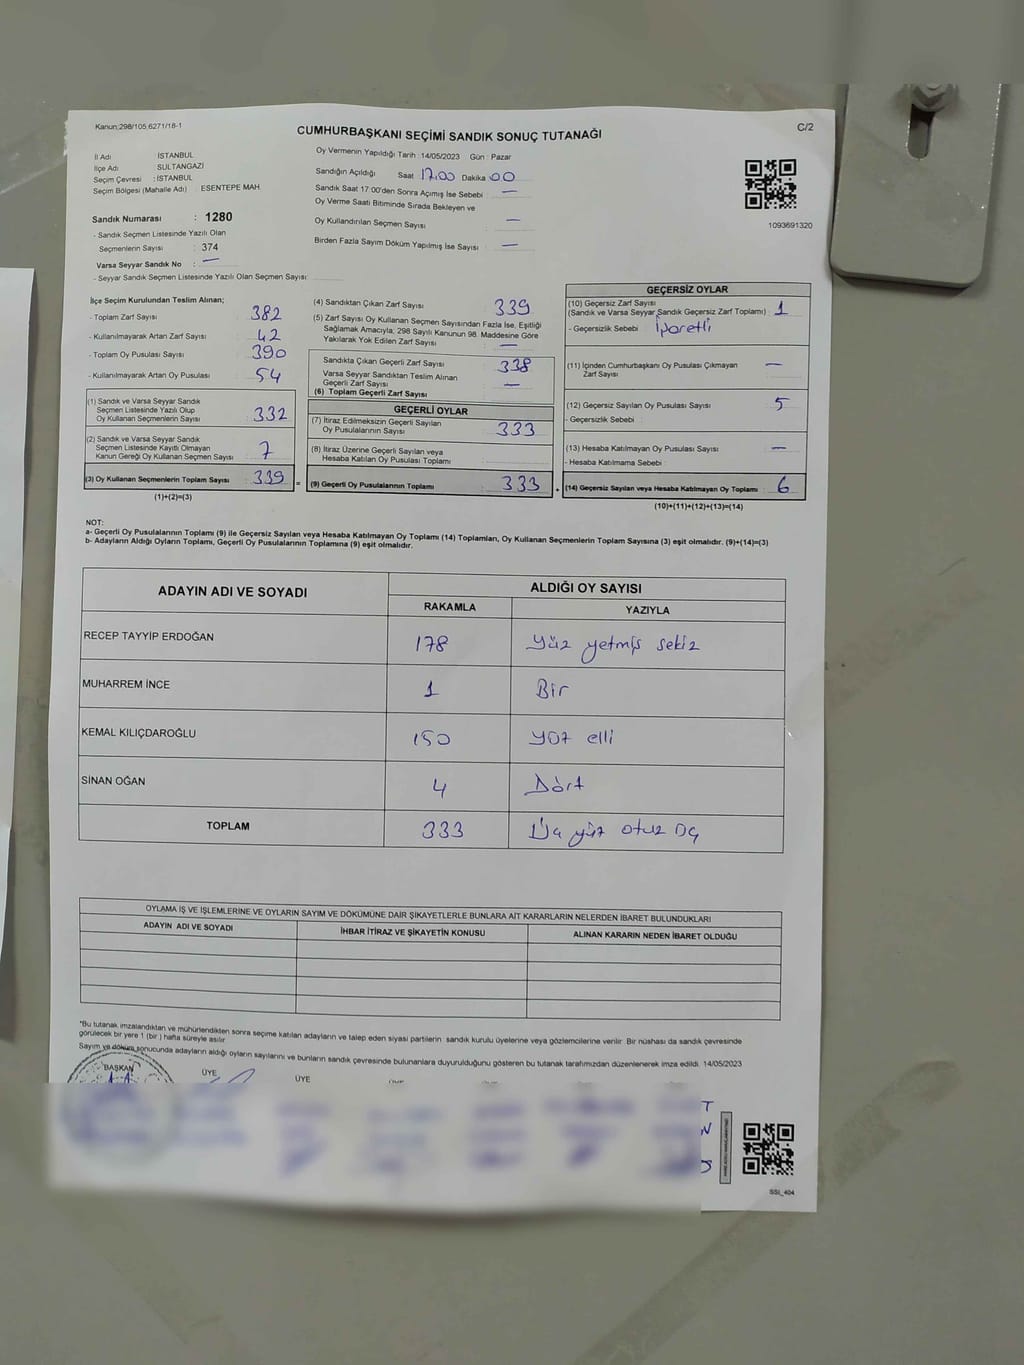 Kanun;298/105;6271/18-1
CUMHURBAŞKANI SEÇİMİ SANDIK SONUÇ TUTANAĞI
C/2
İl Adı : İSTANBUL
İlçe Adı : SULTANGAZİ
Seçim Çevresi : İSTANBUL
Seçim Bölgesi (Mahalle Adı) : ESENTEPE MAH.
Sandık Numarası : 1280
- Sandık Seçmen Listesinde Yazılı Olan
Seçmenlerin Sayısı : 374
Varsa Seyyar Sandık No : —
- Seyyar Sandık Seçmen Listesinde Yazılı Olan Seçmen Sayısı:
Oy Vermenin Yapıldığı Tarih : 14/05/2023 Gün : Pazar
Sandığın Açıldığı Saat 17.00 Dakika 00
Sandık Saat 17:00'den Sonra Açımış İse Sebebi : —
Oy Verme Saati Bitiminde Sırada Bekleyen ve
Oy Kullandırılan Seçmen Sayısı : —
Birden Fazla Sayım Döküm Yapılmış İse Sayısı : —
1093691320
İlçe Seçim Kurulundan Teslim Alınan;
- Toplam Zarf Sayısı : 382
- Kullanılmayarak Artan Zarf Sayısı : 42
- Toplam Oy Pusulası Sayısı : 390
- Kullanılmayarak Artan Oy Pusulası : 54
(1) Sandık ve Varsa Seyyar Sandık
Seçmen Listesinde Yazılı Olup
Oy Kullanan Seçmenlerin Sayısı : 332
(2) Sandık ve Varsa Seyyar Sandık
Seçmen Listesinde Kayıtlı Olmayan
Kanun Gereği Oy Kullanan Seçmen Sayısı : 7
(3) Oy Kullanan Seçmenlerin Toplam Sayısı : 339
(1)+(2)=(3)
=
(4) Sandıktan Çıkan Zarf Sayısı : 339
(5) Zarf Sayısı Oy Kullanan Seçmen Sayısından Fazla İse, Eşitliği
Sağlamak Amacıyla; 298 Sayılı Kanunun 98. Maddesine Göre
Yakılarak Yok Edilen Zarf Sayısı : —
Sandıkta Çıkan Geçerli Zarf Sayısı : 338
Varsa Seyyar Sandıktan Teslim Alınan
Geçerli Zarf Sayısı : —
(6) Toplam Geçerli Zarf Sayısı :
GEÇERLİ OYLAR
(7) İtiraz Edilmeksizin Geçerli Sayılan
Oy Pusulalarının Sayısı : 333
(8) İtiraz Üzerine Geçerli Sayılan veya
Hesaba Katılan Oy Pusulası Toplamı :
(9) Geçerli Oy Pusulalarının Toplamı : 333
+
GEÇERSİZ OYLAR
(10) Geçersiz Zarf Sayısı
(Sandık ve Varsa Seyyar Sandık Geçersiz Zarf Toplamı) : 1
- Geçersizlik Sebebi : İşaretli
(11) İçinden Cumhurbaşkanı Oy Pusulası Çıkmayan
Zarf Sayısı : —
(12) Geçersiz Sayılan Oy Pusulası Sayısı : 5
- Geçersizlik Sebebi :
(13) Hesaba Katılmayan Oy Pusulası Sayısı : —
- Hesaba Katılmama Sebebi :
(14) Geçersiz Sayılan veya Hesaba Katılmayan Oy Toplamı : 6
(10)+(11)+(12)+(13)=(14)
NOT:
a- Geçerli Oy Pusulalarının Toplamı (9) ile Geçersiz Sayılan veya Hesaba Katılmayan Oy Toplamı (14) Toplamları, Oy Kullanan Seçmenlerin Toplam Sayısına (3) eşit olmalıdır. (9)+(14)=(3)
b- Adayların Aldığı Oyların Toplamı, Geçerli Oy Pusulalarının Toplamına (9) eşit olmalıdır.
ADAYIN ADI VE SOYADI ALDIĞI OY SAYISI
RAKAMLA YAZIYLA
RECEP TAYYİP ERDOĞAN 178 yüz yetmiş sekiz
MUHARREM İNCE 1 Bir
KEMAL KILIÇDAROĞLU 150 yüz elli
SİNAN OĞAN 4 Dört
TOPLAM 333 Üç yüz otuz üç
OYLAMA İŞ VE İŞLEMLERİNE VE OYLARIN SAYIM VE DÖKÜMÜNE DAİR ŞİKAYETLERLE BUNLARA AİT KARARLARIN NELERDEN İBARET BULUNDUKLARI
ADAYIN ADI VE SOYADI İHBAR İTİRAZ VE ŞİKAYETİN KONUSU ALINAN KARARIN NEDEN İBARET OLDUĞU
*Bu tutanak imzalandıktan ve mühürlendikten sonra seçime katılan adayların ve talep eden siyasi partilerin sandık kurulu üyelerine veya gözlemcilerine verilir. Bir nüshası da sandık çevresinde
görülecek bir yere 1 (bir) hafta süreyle asılır
Sayım ve döküm sonucunda adayların aldığı oyların sayılarını ve bunların sandık çevresinde bulunanlara duyurulduğunu gösteren bu tutanak tarafımızdan düzenlenerek imza edildi. 14/05/2023
BAŞKAN ÜYE ÜYE
SSI_404